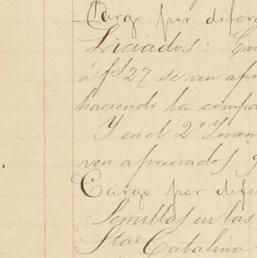 Cargo por difer
Liciados: En
á fs 27 se ven apr
haciendo la compa
Y en el 2º Inven
ven apreciados
Cargo por dife
Semillas en las
Sta Catalina